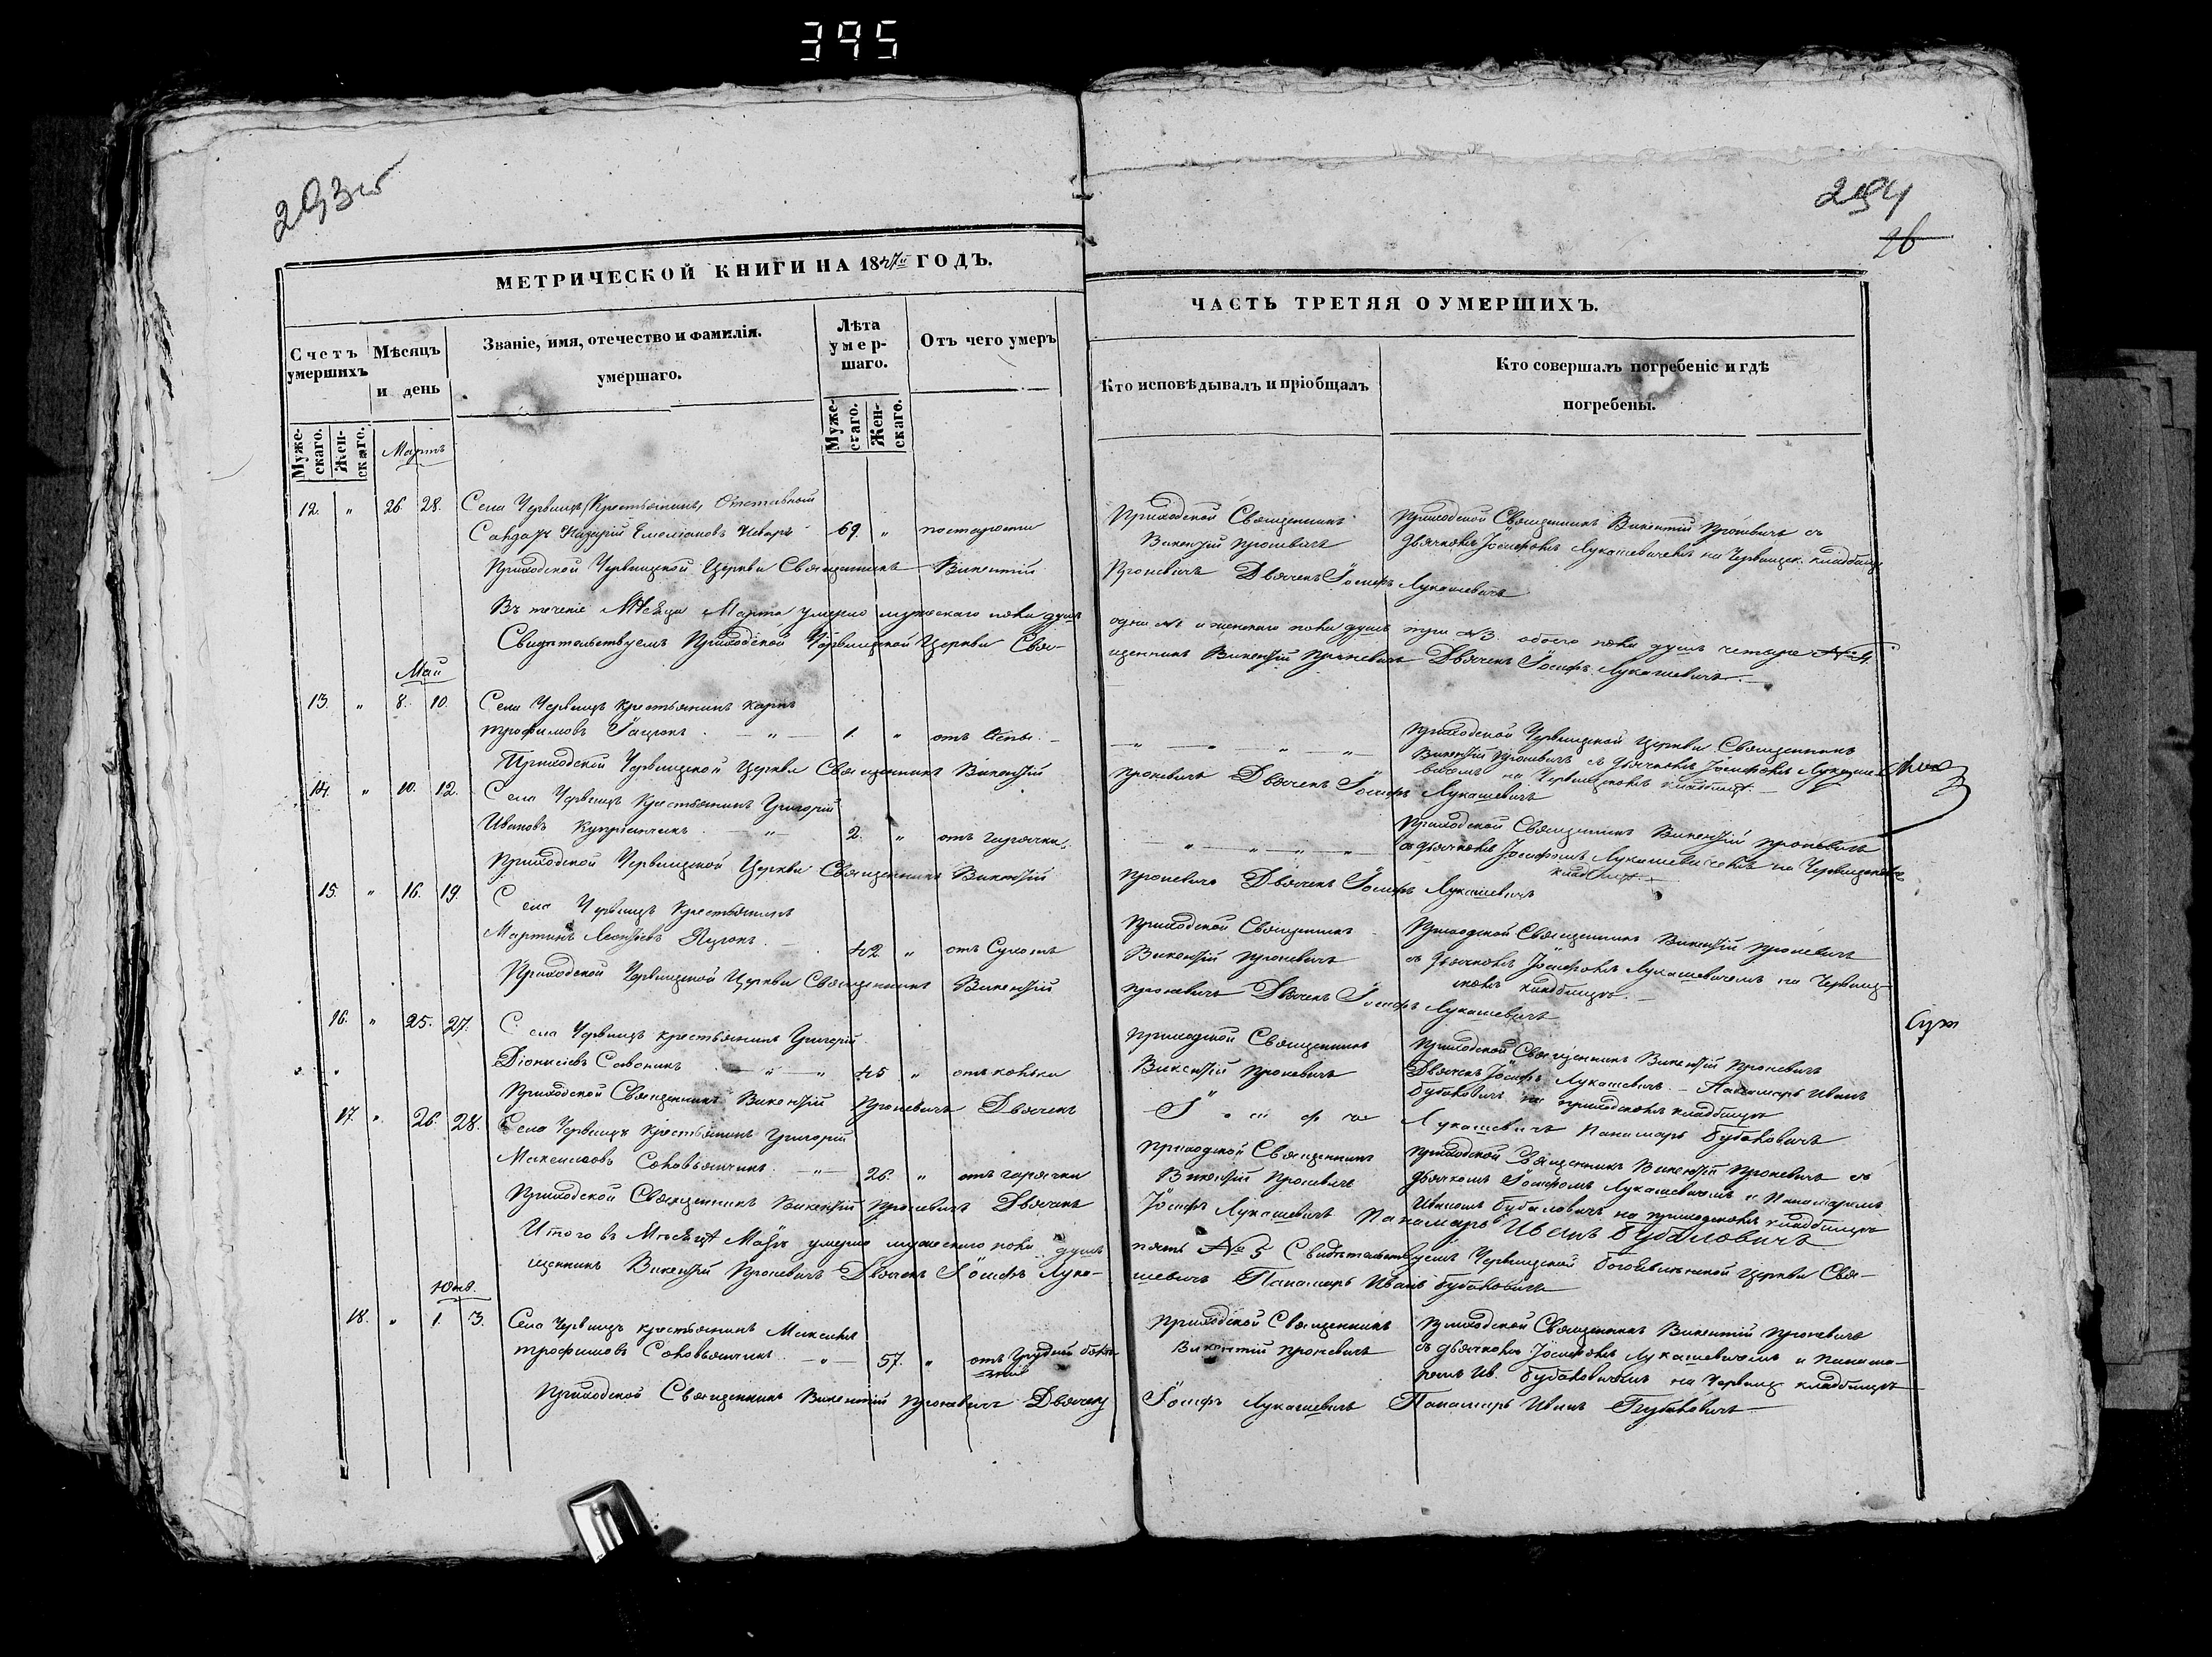 395
293 об
МЕТРИЧЕСКОЙ КНИГИ НА 1847й ГОДЪ.
Счетъ умершихъ
Муже-скаго.
Жен-скаго.
Мѣсяцъ и день
Званіе, имя, отечество и фамилія.
умершаго.
Лѣта умер-шаго.
Муже-скаго.
Жен-скаго.
Отъ чего умеръ
Мартъ
12. " 26 28. Села Червищъ Крестьянинъ, Отставный
Назарій Емеліановъ 69. " постарости
Приходской Червищской Церкви Священникъ Викентій
Въ теченіе Мѣсяца Марта умерло мужескаго пола душъ
Свидѣтельствуемъ Приходской Червищской Церкви Свя-
Май
13. " 8. 10. Села Червищъ крестьянинъ Карпъ
Трофимовъ Яцюкъ. — " — 1. " отъ Оспы. —
Приходской Червищской Церкви Священникъ Викентій
14. " 10. 12. Села Червищъ Крестьянинъ Григорій
Ивановъ Купріянчикъ. — " — 2. " отъ горячки.
Приходской Червищской Церкви Священникъ Викентій
15. " 16. 19. Села Червищъ Крестьянинъ
Мартинъ Леонтіевъ Яцюкъ. — 42 " отъ Сухотъ
Приходской Червищской Церкви Священникъ Викентій
16. " 25. 27. Села Червищъ крестьянинъ Григорій
Діонисіевъ Савоникъ — " — " 45 " отъ кольки
Приходской Священникъ Викентій Проневичъ Дьячекъ
17. " 26. 28. Села Червищъ Крестьянинъ Григорій
Максимовъ Соловьянчикъ. — " — 26. " отъ горячки
Приходской Священникъ Викентій Проневичъ Дьячекъ
Итого въ Мѣсяцѣ Маѣ умерло мужескаго пола душъ
щенникъ Викентій Проневичъ Дьячекъ Іосифъ Лука-
Юнь.
18. " 1. 3. Села Червищъ крестьянинъ Максимъ
Трофимовъ Соловьянчикъ. — " — 57. " отъ Грудной болѣ-
зни
Приходской Священникъ Викентій Проневичъ Дьячекъ
294
26
ЧАСТЬ ТРЕТЯЯ О УМЕРШИХЪ.
Кто исповѣдывалъ и пріобщалъ
Кто совершалъ погребеніе и гдѣ
погребены.
Приходской Священникъ Приходской Священникъ Викентій Проневичъ съ
Викентій Проневичъ Дьячкомъ Іосифомъ Лукашевичемъ на Червищск. кладбищѣ
Проневичъ Дьячекъ Іосифъ Лукашевичъ
одна №1 и женскаго пола душъ три №3. обоего пола душъ четыре №4.
щенникъ Викентій Проневичъ Дьячекъ Іосифъ Лукашевичъ. —
Приходской Червищской Церкви Священникъ
— " — " — " — " — Викентій Проневичъ съ дьячкомъ Іосифомъ Лукаше-
вичемъ на Червищскомъ кладбищѣ. —
Проневичъ Дьячекъ Іосифъ Лукашевичъ
Приходской Священникъ Викентій Проневичъ
— " — " — " — " съ дьячкомъ Іосифомъ Лукашевичемъ на Червищскомъ
кладбищѣ. —
Проневичъ Дьячекъ Іосифъ Лукашевичъ
Приходской Священникъ Приходской Священникъ Викентій Проневичъ
Викентій Проневичъ съ дьячкомъ Іосифомъ Лукашевичемъ на Червищ-
скомъ кладбищѣ. —
Проневичъ Дьячекъ Іосифъ Лукашевичъ
Приходской Священникъ Приходской Священникъ Викентій Проневичъ
Викентій Проневичъ Дьячекъ Іосифъ Лукашевичъ. — Панамарь Иванъ
Бубаловичъ на приходскомъ кладбищѣ
Іосифъ Лукашевичъ Панамарь Бубаловичъ
Приходской Священникъ Приходской Священникъ Викентій Проневичъ съ
Викентій Проневичъ дьячкомъ Іосифомъ Лукашевичемъ и Панамаремъ
Иваномъ Бубаловичъ на приходскомъ кладбищѣ
Іосифъ Лукашевичъ Панамарь Иванъ Бубаловичъ
пять №5 Свидѣтельствуемъ Червищской Богоявленской Церкви Свя-
шевичъ Панамарь Иванъ Бубаловичъ
Приходской Священникъ Приходской Священникъ Викентій Проневичъ
Викентій Проневичъ съ дьячкомъ Іосифомъ Лукашевичемъ и Панама-
ремъ Ив. Бубаловичемъ на Червищ. кладбищѣ
Іосифъ Лукашевичъ Панамарь Иванъ Бубаловичъ